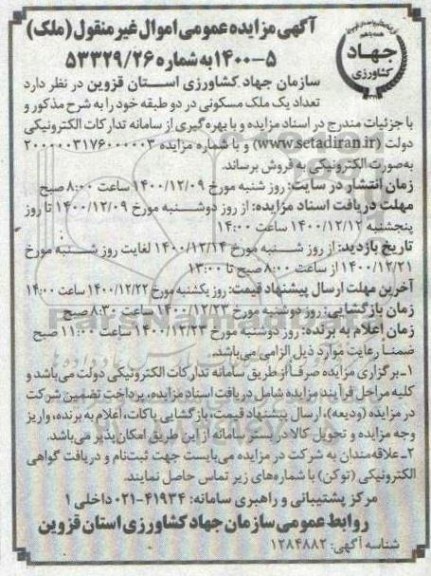 آگهی مزایده عمومی اموال غیر منقول (ملک)
۵-۱۴۰۰ به شماره ۵۳۳۲۹/۲۶
جهاد
کشاورزی
سازمان جهاد کشاورزی استان قزوین در نظر دارد
تعداد یک ملک مسکونی در دو طبقه خود را به شرح مذکور و
با جزئیات مندرج در اسناد مزایده و با بهره گیری از سامانه تدارکات الکترونیکی
دولت (www.setadiran.ir) و با شماره مزایده ۲۰۰۰۰۰۳۱۷۶۰۰۰۰۰۳
به صورت الکترونیکی به فروش برساند.
زمان انتشار در سایت: روز شنبه مورخ ۱۴۰۰/۱۲/۰۹ ساعت ۸:۰۰ صبح
مهلت دریافت اسناد مزایده: از روز دوشنبه مورخ ۱۴۰۰/۱۲/۰۹ تا روز
پنجشنبه ۱۴۰۰/۱۲/۱۲ ساعت ۱۴:۰۰
تاریخ بازدید: از روز شنبه مورخ ۱۴۰۰/۱۲/۱۴ لغایت روز شنبه مورخ
۱۴۰۰/۱۲/۲۱ از ساعت ۸:۰۰ صبح تا ۱۳:۰۰
آخرین مهلت ارسال پیشنهاد قیمت: روز یکشنبه مورخ ۱۴۰۰/۱۲/۲۲ ساعت ۱۴:۰۰
زمان بازگشایی: روز دوشنبه مورخ ۱۴۰۰/۱۲/۲۳ ساعت ۸:۳۰ صبح
زمان اعلام به برنده: روز دوشنبه مورخ ۱۴۰۰/۱۲/۲۳ ساعت ۱۱:۰۰ صبح
ضمنا رعایت موارد ذیل الزامی می‌باشد.
۱-برگزاری مزایده صرفا از طریق سامانه تدارکات الکترونیکی دولت می‌باشد و
کلیه مراحل فرآیند مزایده شامل دریافت اسناد مزایده، پرداخت تضمین شرکت
در مزایده (ودیعه)، ارسال پیشنهاد قیمت، بازگشایی پاکات، اعلام به برنده، واریز
وجه مزایده و تحویل کالا در بستر سامانه از این طریق امکان پذیر می‌باشد.
۲-علاقه‌مندان به شرکت در مزایده می‌بایست جهت ثبت‌نام و دریافت گواهی
الکترونیکی (توکن) با شماره‌های زیر تماس حاصل نمایند.
مرکز پشتیبانی و راهبری سامانه: ۴۱۹۳۴-۰۲۱ داخلی ۱
روابط عمومی سازمان جهاد کشاورزی استان قزوین
شناسه آگهی: ۱۲۸۴۸۸۲